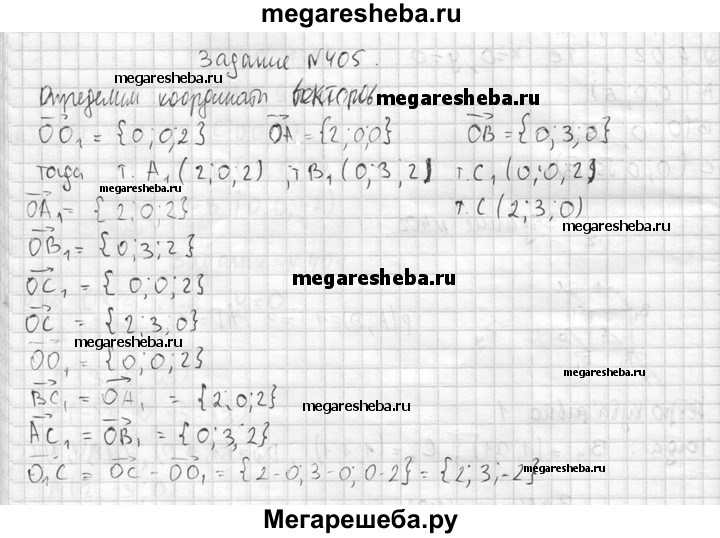 megaresheba.ru
Задание №405.
megaresheba.ru
Определим координаты векторов megaresheba.ru
OO₁ = {0; 0; 2} OA = {2; 0; 0} OB = {0; 3; 0}
тогда т. A₁ (2; 0; 2) ; т B₁ (0; 3; 2) т. C₁ (0; 0; 2)
megaresheba.ru
OA₁ = {2; 0; 2} т. C (2; 3; 0)
megaresheba.ru
OB₁ = {0; 3; 2}
OC₁ = {0; 0; 2} megaresheba.ru
OC = {2; 3; 0}
megaresheba.ru
OO₁ = {0; 0; 2}
megaresheba.ru
BC₁ = OA₁ = {2; 0; 2} megaresheba.ru
AC₁ = OB₁ = {0; 3; 2}
O₁C = OC - OO₁ = {2-0; 3-0; 0-2} = {2; 3; -2} megaresheba.ru
Мегарешеба.ру